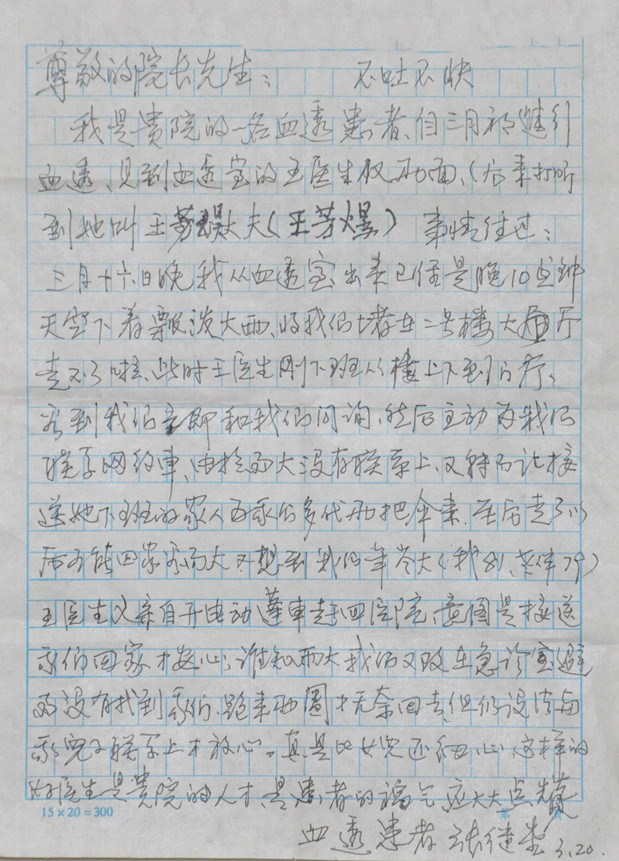 尊敬的院长先生： 不吐不快
我是贵院的一名血透患者,自三月初
血透、见到血透室的王医生仅两面,(后来打听
到她叫王芳 大夫(王芳爆) 事情经过：
三月十六日晚我从血透室出来已经是晚10点钟
天空下着瓢泼大雨、将我们堵在二号楼大 厅
走不了啦、此时王医生刚下班从楼上下到1门厅、
看到我们立即和我们问询,然后主动为我们
联系网约車、由於雨大没有联系上、又特为让接
送她下班的家人为我们多代两把伞来.在后走了以
后可能回家看雨大又想到我们年岁大(我81、老伴79)
王医生又亲自开电动蓬車赶回医院、意图是接送
我们回家才按心;谁知雨大我们又改在急诊室避
雨没有找到我们、跑来两圈才无奈回去,但仍设法与
我儿子联系上才放心。真是比女儿还细心 这样的
好医生是贵院的人才、是患者的福气 应大大点赞
15×20=300
血透患者 张 3.20.